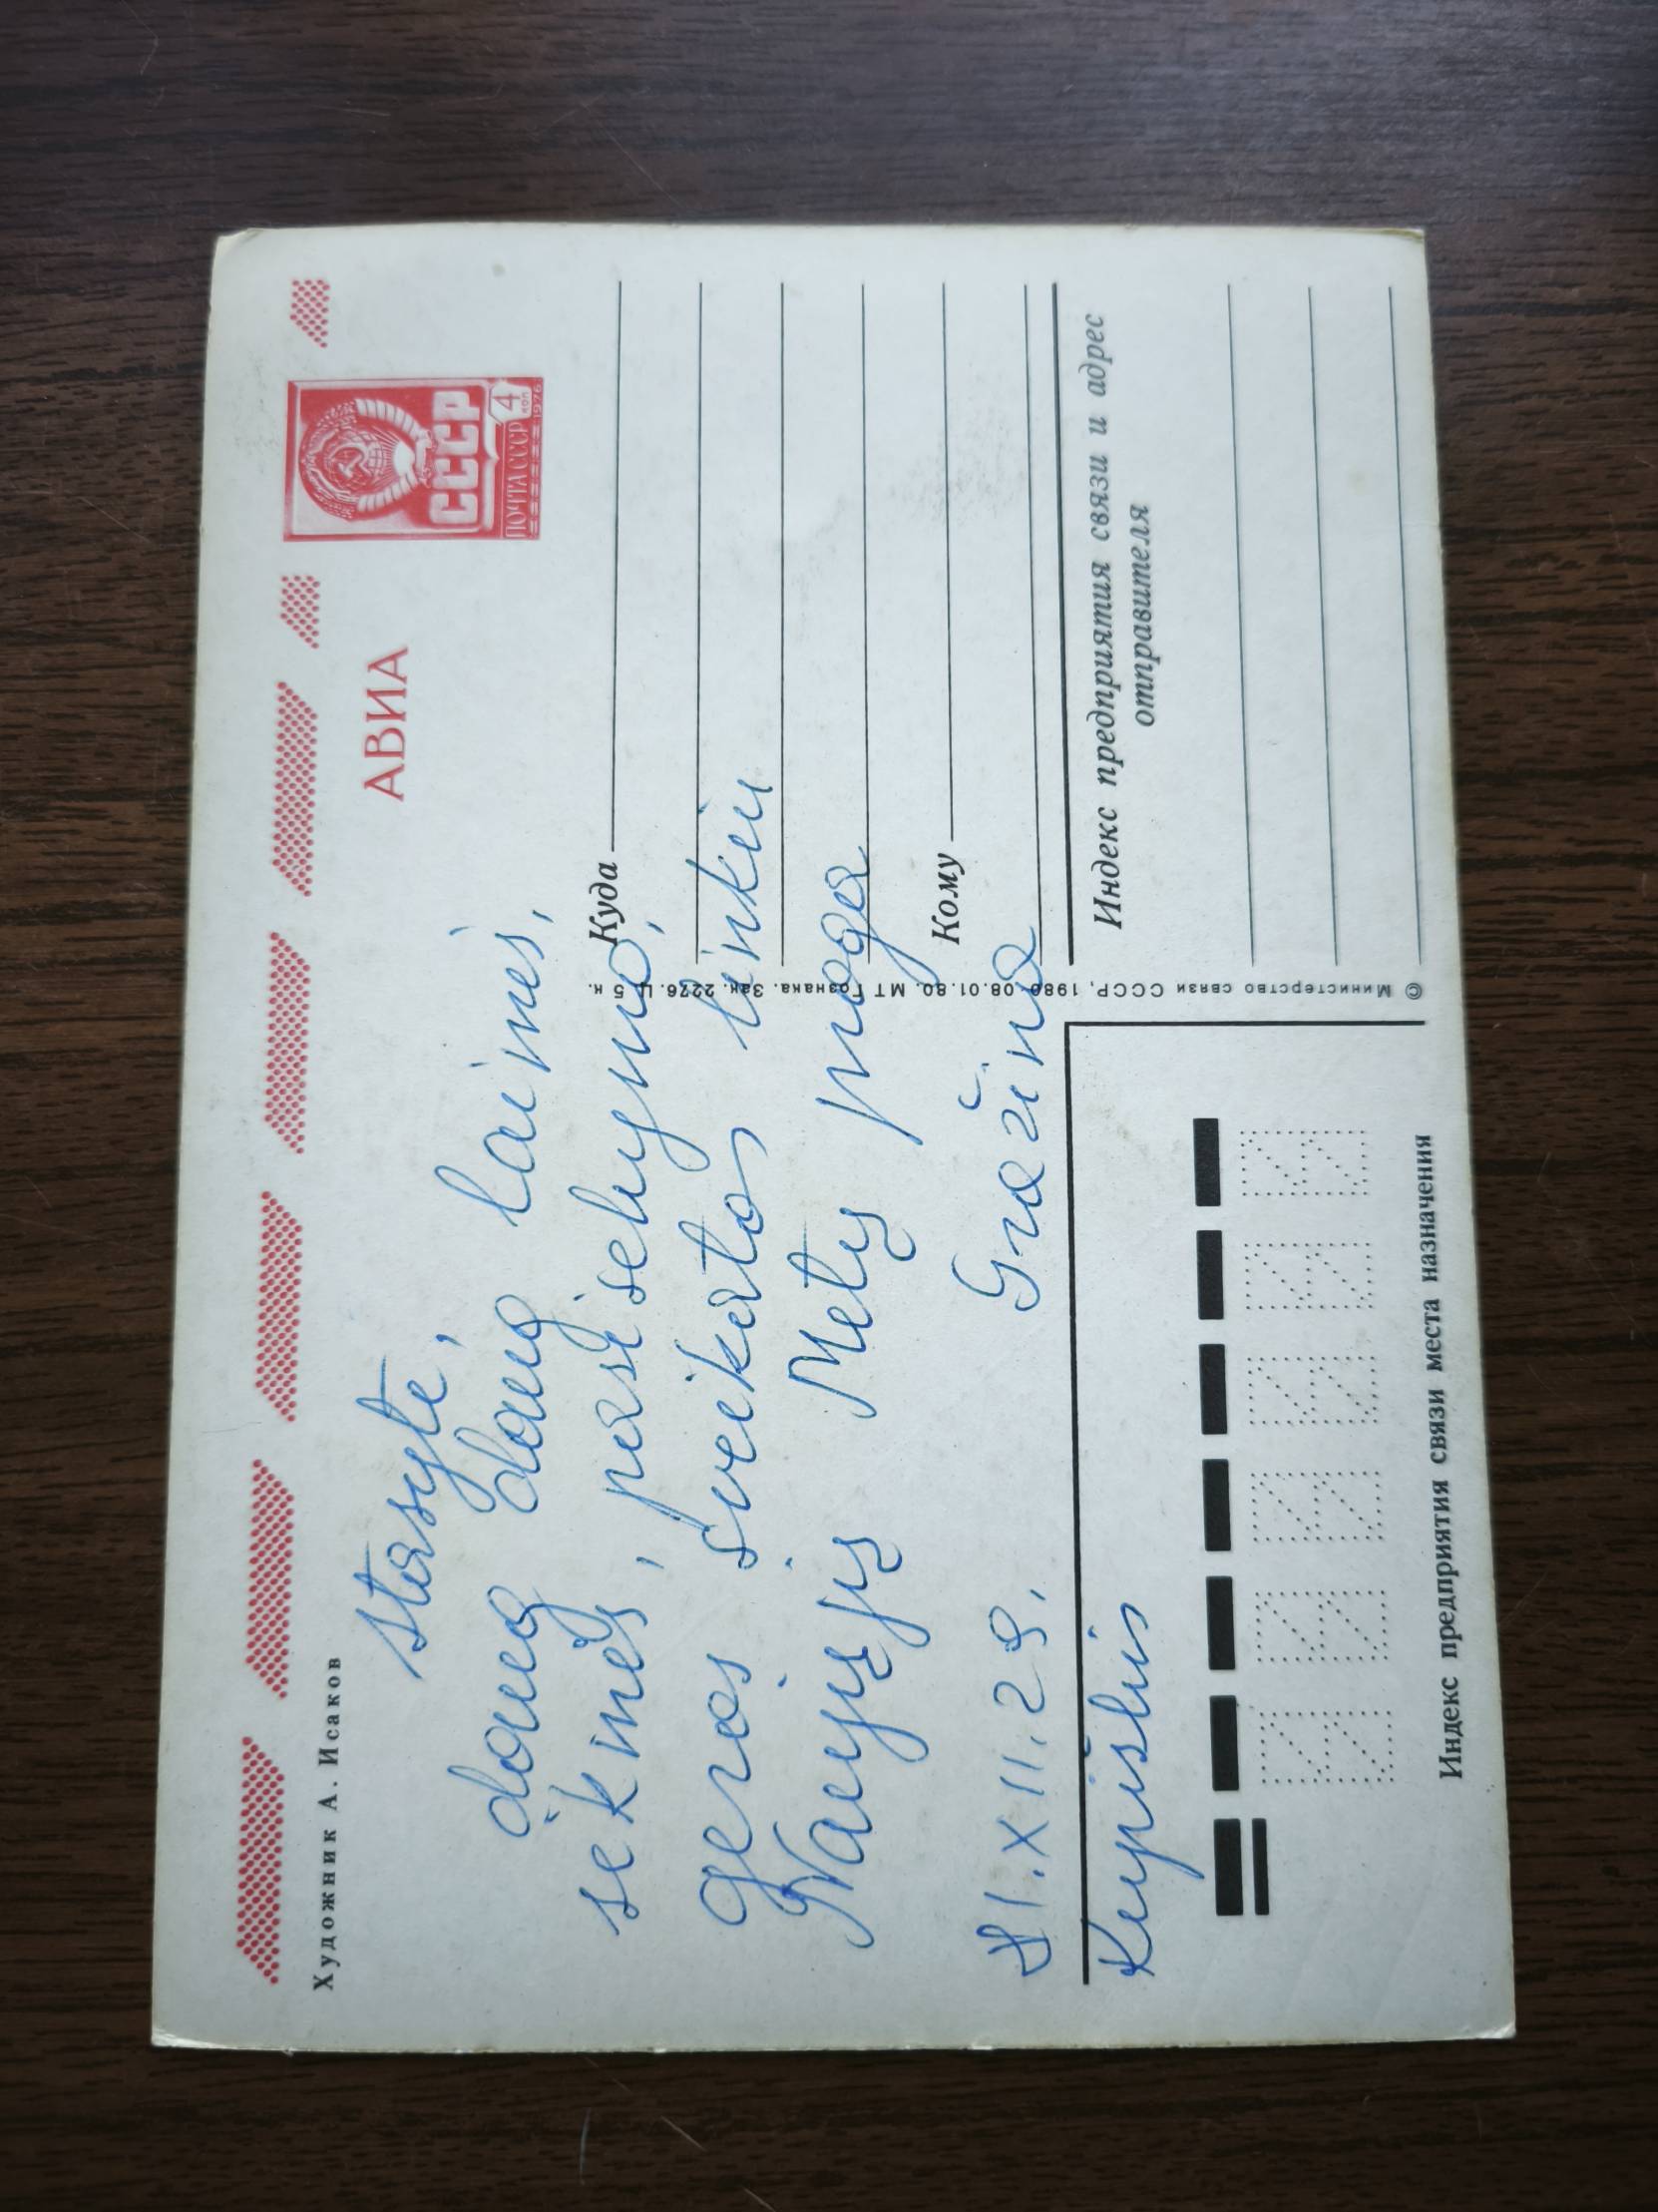 Художник А. Исаков
АВИА
СССР
ПОЧТА СССР 4 коп
1976
Stasyte,
daug daug laimės,
sėkmės, pasisekymo,
geros sveikatos linkiu
Naujųjų Metų proga
Gražina
81.XII.29.
Kupiškis
Куда
Кому
Индекс предприятия связи и адрес
отправителя
© Министерство связи СССР, 1980. 08.01.80. МТ Гознака. Зак. 2276. Ц. 5 к.
Индекс предприятия связи места назначения